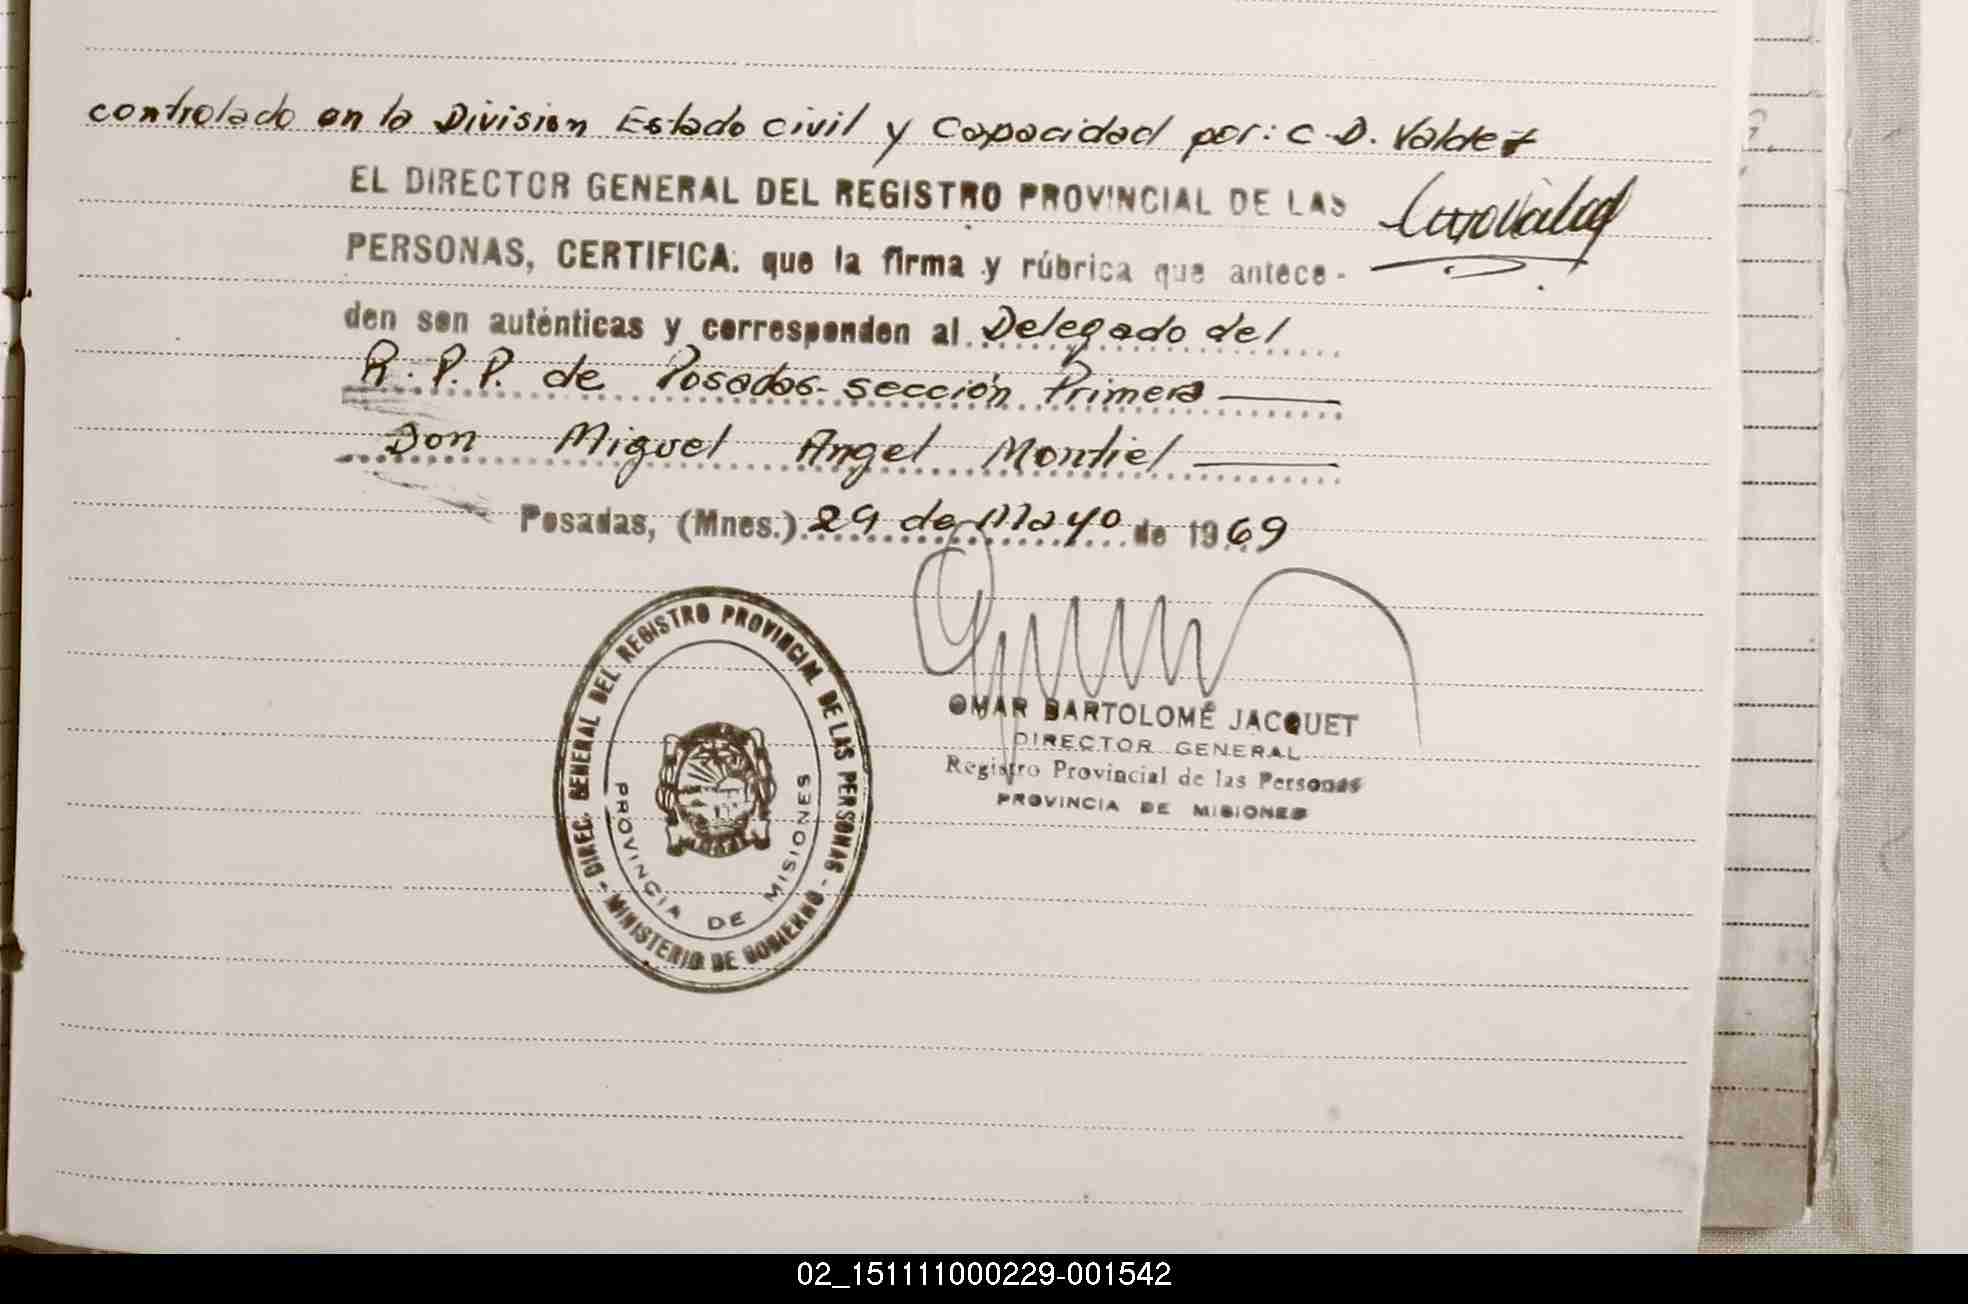 controlado en la Division Estado civil y Capacidad por: C.D. Valdez
EL DIRECTOR GENERAL DEL REGISTRO PROVINCIAL DE LAS
PERSONAS, CERTIFICA: que la firma y rúbrica que antece-
den son auténticas y corresponden al Delegado del
R. P. P. de Posadas - sección Primera
Don Miguel Angel Montiel
Posadas, (Mnes.) 29 de Mayo de 1969
OMAR BARTOLOMÉ JACQUET
DIRECTOR GENERAL
Registro Provincial de las Personas
PROVINCIA DE MISIONES
DIREC. GENERAL DEL REGISTRO PROVINCIAL DE LAS PERSONAS
- MINISTERIO DE GOBIERNO -
PROVINCIA DE MISIONES
02_151111000229-001542